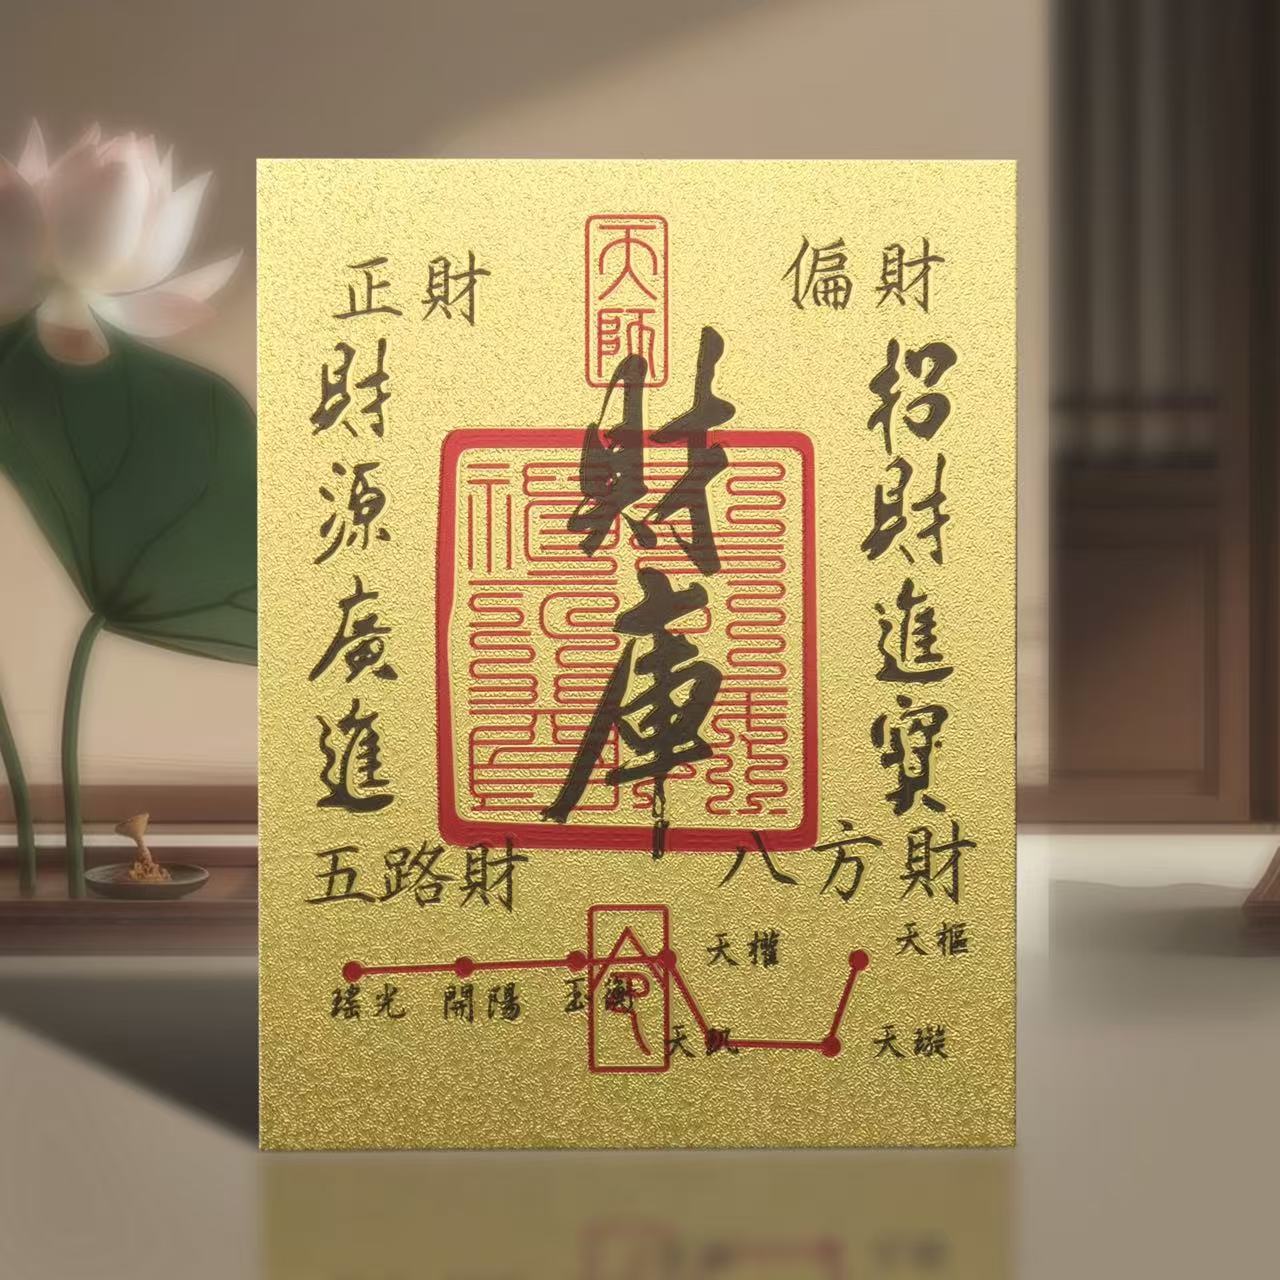 天師
正財
偏財
招財進寶
財源廣進
財庫
五路財
八方財
令
天樞
天權
瑤光
開陽
玉衡
天璇